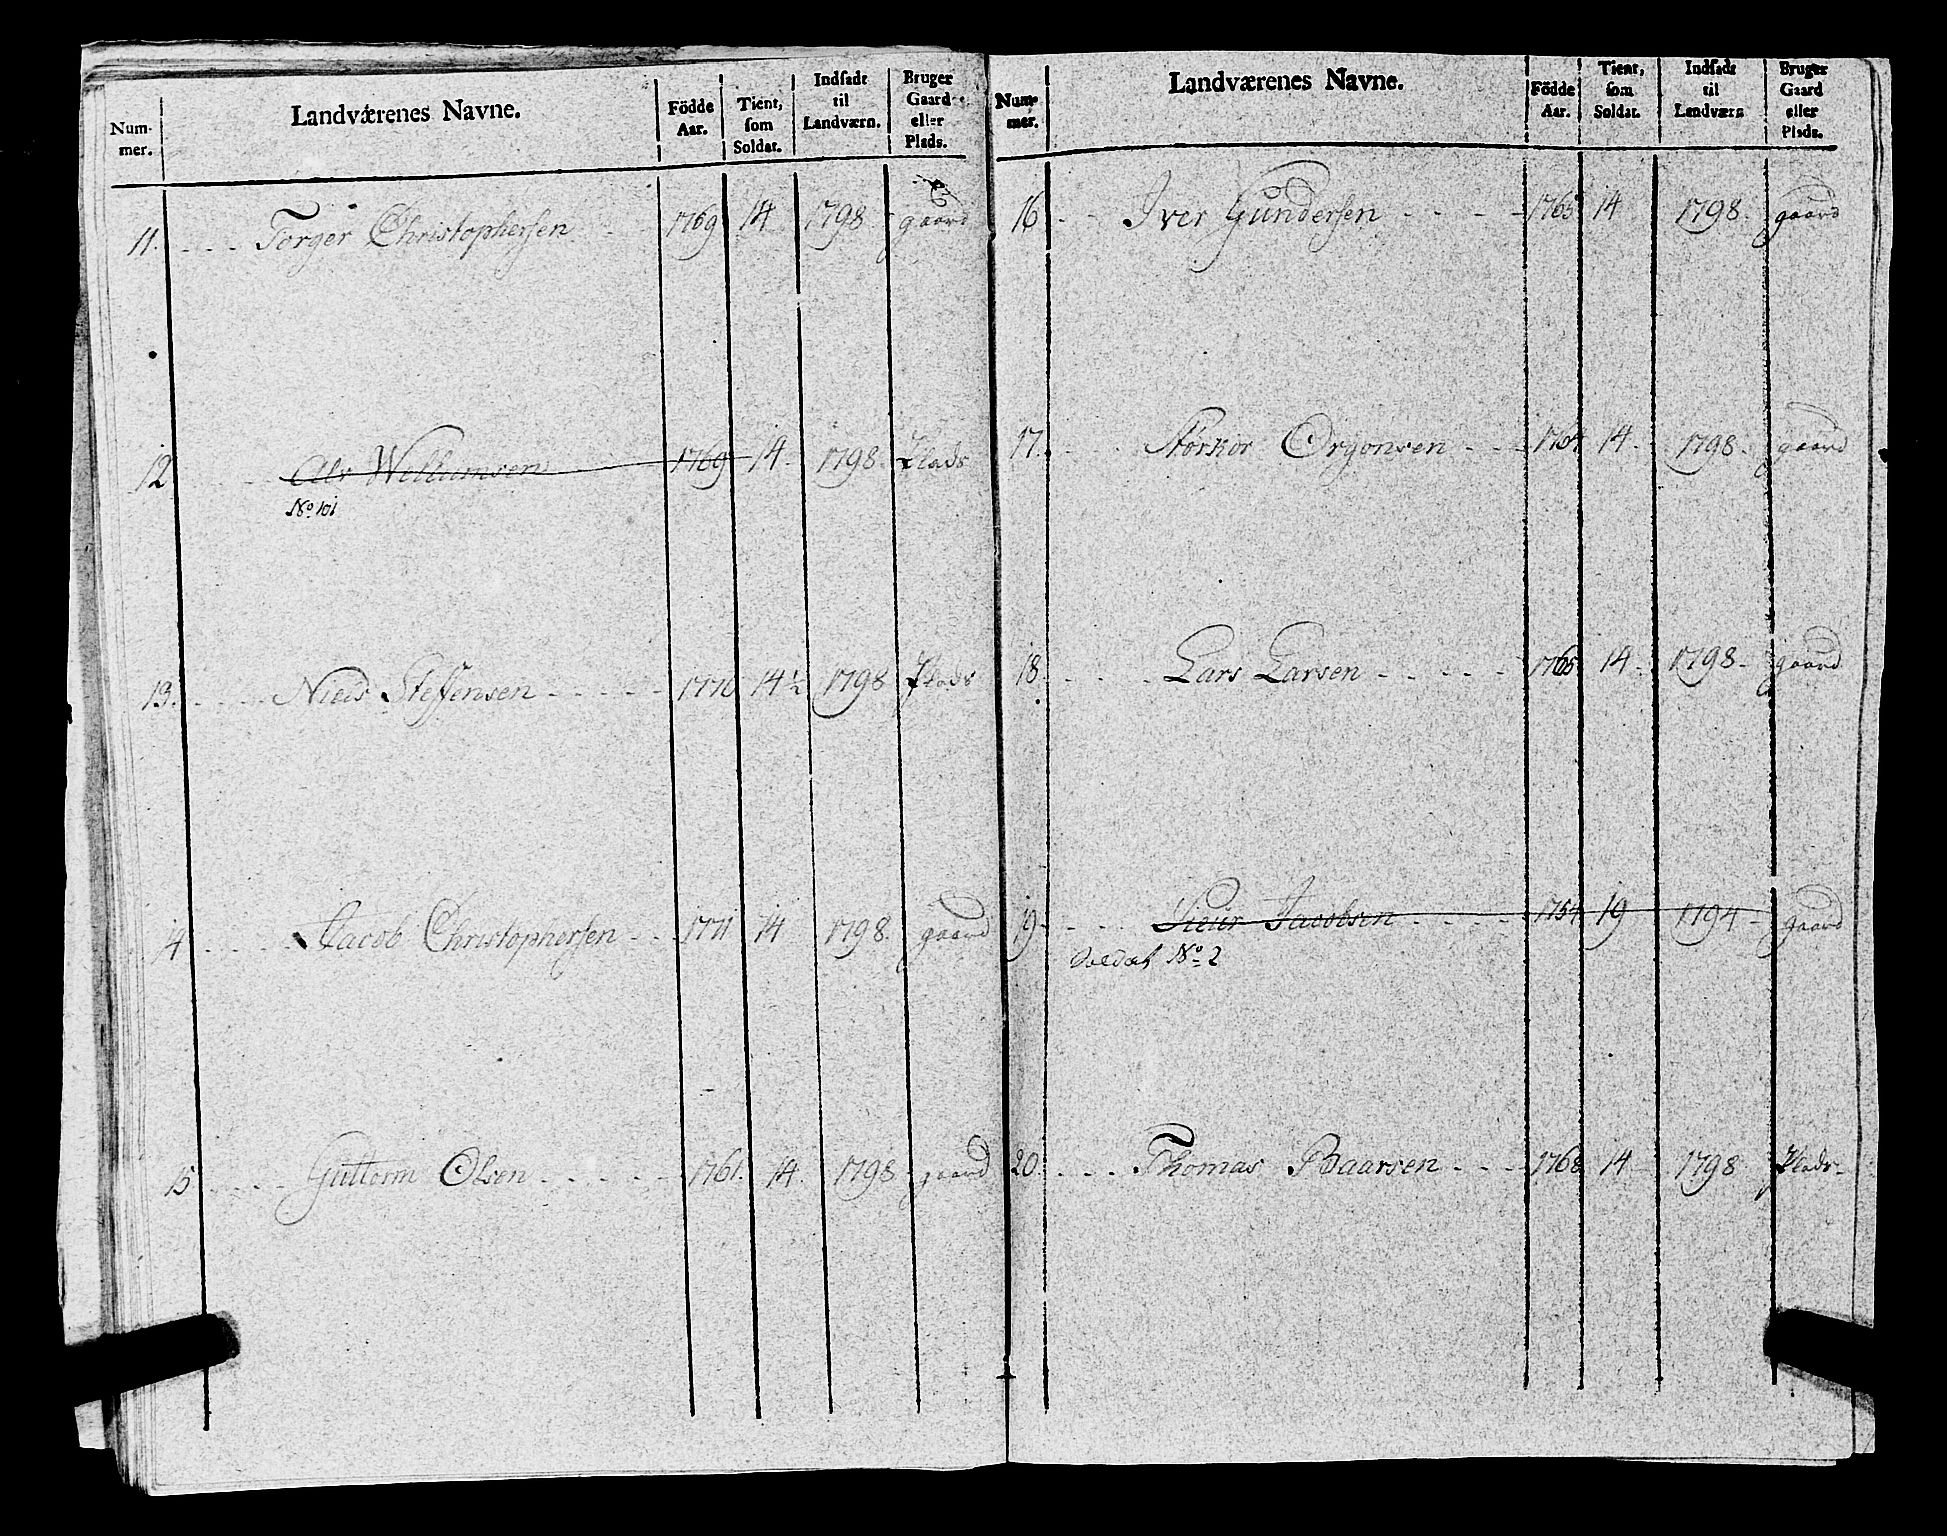 Num-
mer.
Landværenes Navne.
Födde
Aar.
Tient,
som
Soldat.
Indsadt
til
Landværn.
Bruger
Gaard
eller
Plads.
11. Torger Christophersen 1769 14 1798 gaard
12 Alv Wellumsen 1769 14 1798 Plads
No 101
13. Niels Steffensen 1770 14 1/2 1798 Plads
14 Jacob Christophersen 1771 14 1798 gaard
15 Guttorm Olsen 1761 14 1798 gaard
Num-
mer.
Landværenes Navne.
Födde
Aar.
Tient,
som
Soldat.
Indsadt
til
Landværn
Bruger
Gaard
eller
Plads.
16 Iver Gundersen 1765 14 1798 gaard
17. Størkor Orgonsen 1764 14 1798 gaard
18 Lars Larsen 1765 14 1798 gaard
19 Jacobsen 1754 19 1794 gaard
Soldat No 2
20 Thomas Baarsen 1768 14 1798 Plads